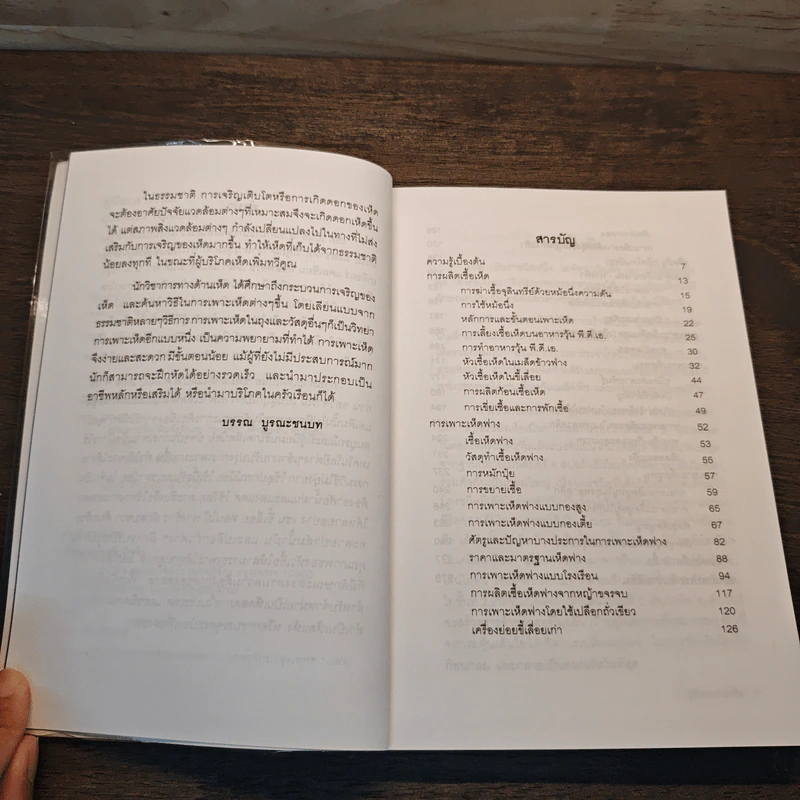 ในธรรมชาติ การเจริญเติบโตหรือการเกิดดอกของเห็ด
จะต้องอาศัยปัจจัยแวดล้อมต่างๆที่เหมาะสมจึงจะเกิดดอกเห็ดขึ้น
ได้ แต่สภาพสิ่งแวดล้อมต่างๆ กำลังเปลี่ยนแปลงไปในทางที่ไม่ส่ง
เสริมกับการเจริญของเห็ดมากขึ้น ทำให้เห็ดที่เก็บได้จากธรรมชาติ
น้อยลงทุกที ในขณะที่ผู้บริโภคเห็ดเพิ่มทวีคูณ
นักวิชาการทางด้านเห็ด ได้ศึกษาถึงกระบวนการเจริญของ
เห็ด และค้นหาวิธีในการเพาะเห็ดต่างๆขึ้น โดยเลียนแบบจาก
ธรรมชาติหลายๆวิธีการ การเพาะเห็ดในถุงและวัสดุอื่นๆก็เป็นวิทยา
การเพาะเห็ดอีกแบบหนึ่ง เป็นความพยายามที่ทำได้ การเพาะเห็ด
จึงง่ายและสะดวก มีขั้นตอนน้อย แม้ผู้ที่ยังไม่มีประสบการณ์มาก
นักก็สามารถจะฝึกหัดได้อย่างรวดเร็ว และนำมาประกอบเป็น
อาชีพหลักหรือเสริมได้ หรือนำมาบริโภคในครัวเรือนก็ได้
บรรณ บูรณะชนบท
สารบัญ
ความรู้เบื้องต้น 7
การผลิตเชื้อเห็ด 13
การฆ่าเชื้อจุลินทรีย์ด้วยหม้อนึ่งความดัน 15
การใช้หม้อนึ่ง 19
หลักการและขั้นตอนเพาะเห็ด 22
การเลี้ยงเชื้อเห็ดบนอาหารวุ้น พี.ดี.เอ. 25
การทำอาหารวุ้น พี.ดี.เอ. 30
หัวเชื้อเห็ดในเมล็ดข้าวฟ่าง 32
หัวเชื้อเห็ดในขี้เลื่อย 44
การผลิตก้อนเชื้อเห็ด 47
การเขี่ยเชื้อและการพักเชื้อ 49
การเพาะเห็ดฟาง 52
เชื้อเห็ดฟาง 53
วัสดุทำเชื้อเห็ดฟาง 55
การหมักปุ๋ย 57
การขยายเชื้อ 59
การเพาะเห็ดฟางแบบกองสูง 65
การเพาะเห็ดฟางแบบกองเตี้ย 67
ศัตรูและปัญหาบางประการในการเพาะเห็ดฟาง 82
ราคาและมาตรฐานเห็ดฟาง 88
การเพาะเห็ดฟางแบบโรงเรือน 94
การผลิตเชื้อเห็ดฟางจากหญ้าขจรจบ 117
การเพาะเห็ดฟางโดยใช้เปลือกถั่วเขียว 120
เครื่องย่อยขี้เลื่อยเก่า 126